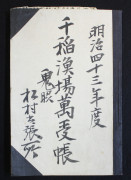 明治四十三年度
千稲漁場萬受帳
鬼脇
松村出張所